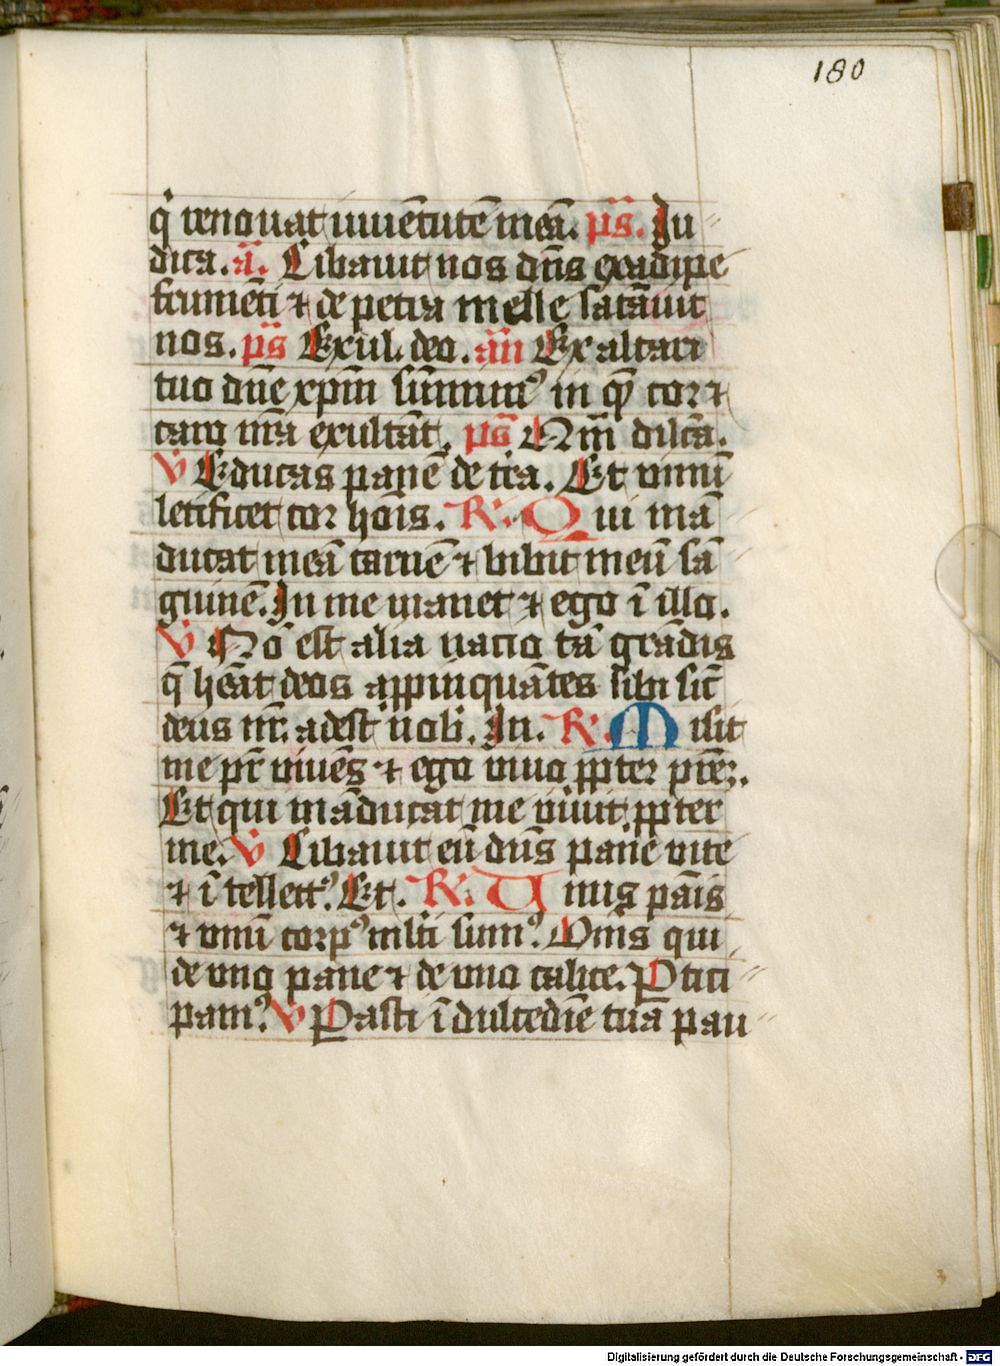 180
q̇ renouat iuuētutē meā. ps̄. Iu
dica. a̅. Cibauit nos dn̄s ex adipe
frumēti ⁊ de petra melle satāuit
nos. ps̄ Exul. deo. an̄ Ex altari
tuo dn̄e xp̄m sūmimꝰ in qͦ cor ⁊
caro nr̄a exultāt. ps̄ Qm̄ dilc̄a.
℣ Educas panē de tr̄a. Et vinū
letificet cor hoīs. R̷. Qui mā
ducat meā carnē ⁊ bibit meū sā
guinē. In me manet ⁊ ego ī illo.
℣ Nō est alia nacio tā grādis
q̄ hēat deos appīnquātes sibi sic̄
deus nr̄. adest nobi. In. R̷. Misit
me pr̄ viuēs ⁊ ego viuo ꝓpter prēꝫ.
Et qui māducat me viuit ꝓpter
me. ℣ Cibauit eū dn̄s pane vite
⁊ ī tellectꝰ. Et. R̷. Unus pāis
⁊ vnū corpꝰ ml̄ti sumꝰ. Om̄s qui
de vno pane ⁊ de vno calice. Ꝑtici
pamꝰ. ℣ Parasti ī dulcedīe tuā pau
Digitalisierung gefördert durch die Deutsche Forschungsgemeinschaft - DFG